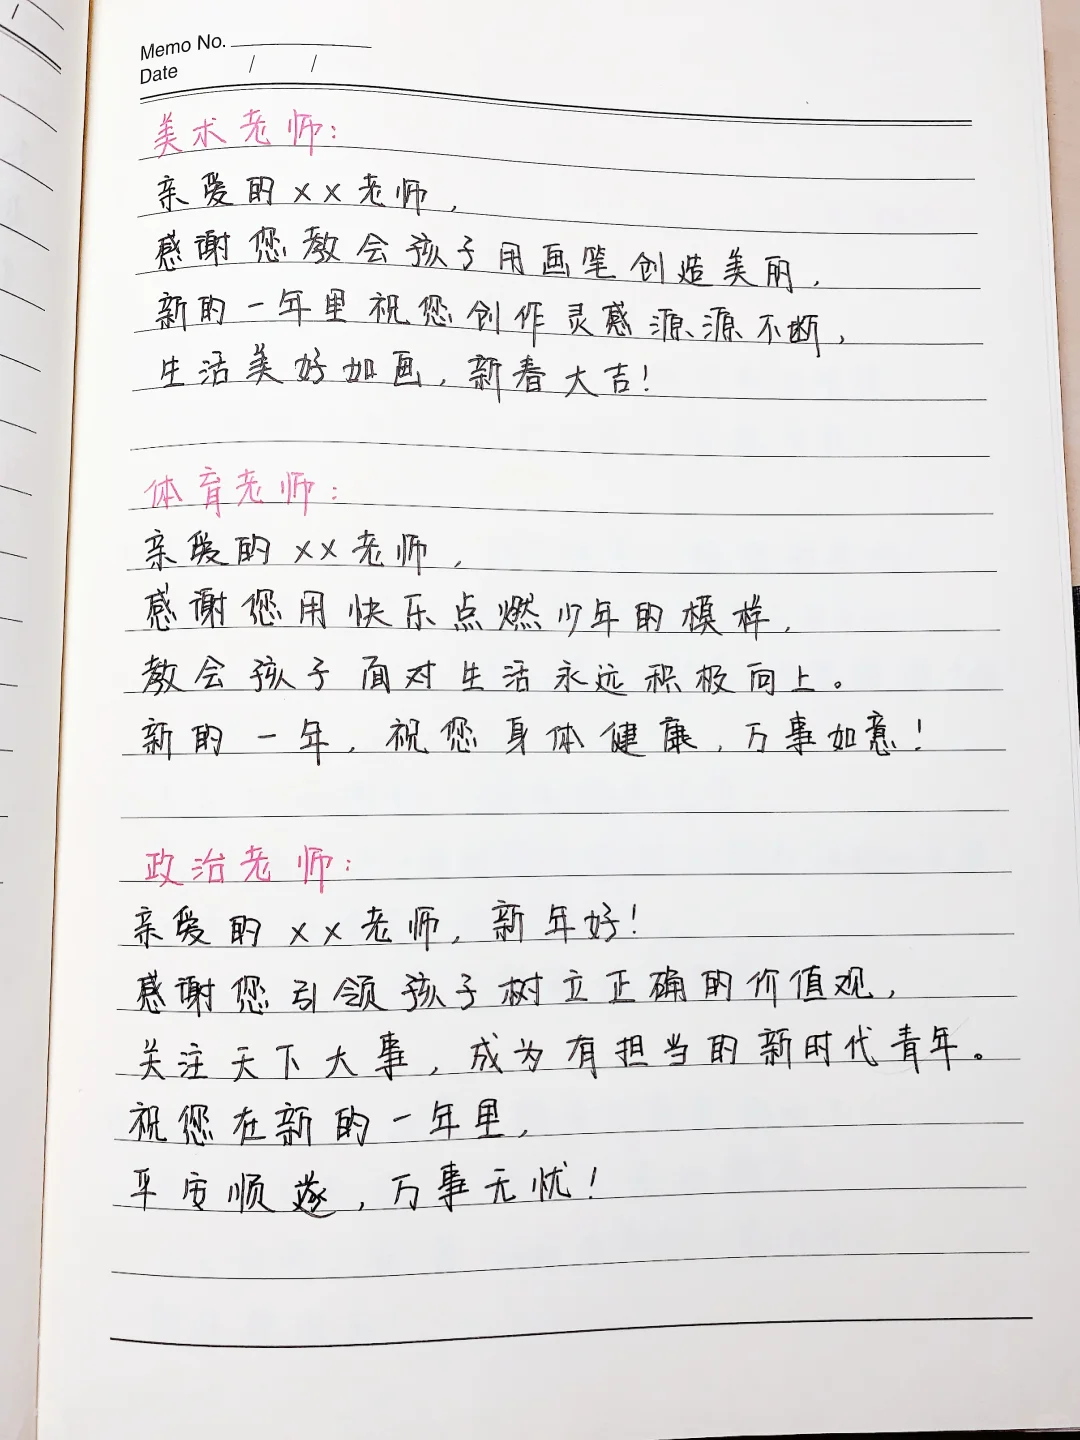 Memo No.
Date / /
美术老师:
亲爱的××老师,
感谢您教会孩子用画笔创造美丽,
新的一年里祝您创作灵感源源不断,
生活美好如画,新春大吉!
体育老师:
亲爱的××老师,
感谢您用快乐点燃少年的模样,
教会孩子面对生活永远积极向上。
新的一年,祝您身体健康,万事如意!
政治老师:
亲爱的××老师,新年好!
感谢您引领孩子树立正确的价值观,
关注天下大事,成为有担当的新时代青年。
祝您在新的一年里,
平安顺遂,万事无忧!